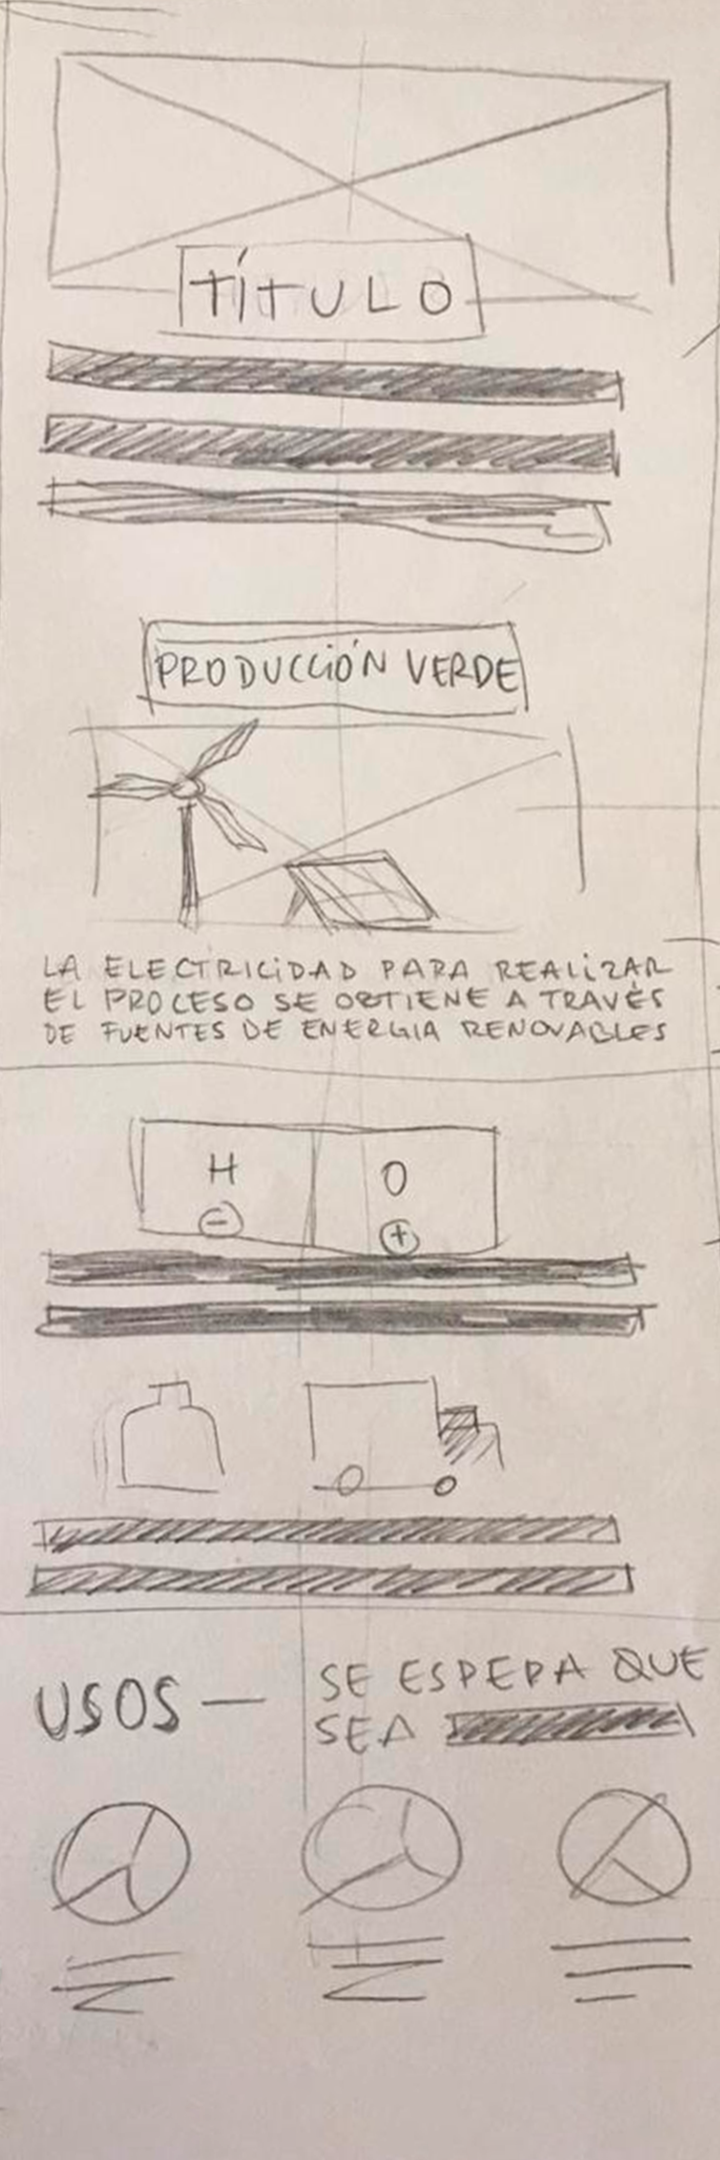 TÍTULO
PRODUCCIÓN VERDE
LA ELECTRICIDAD PARA REALIZAR
EL PROCESO SE OBTIENE A TRAVÉS
DE FUENTES DE ENERGIA RENOVABLES
H O
- +
USOS — SE ESPERA QUE
SEA